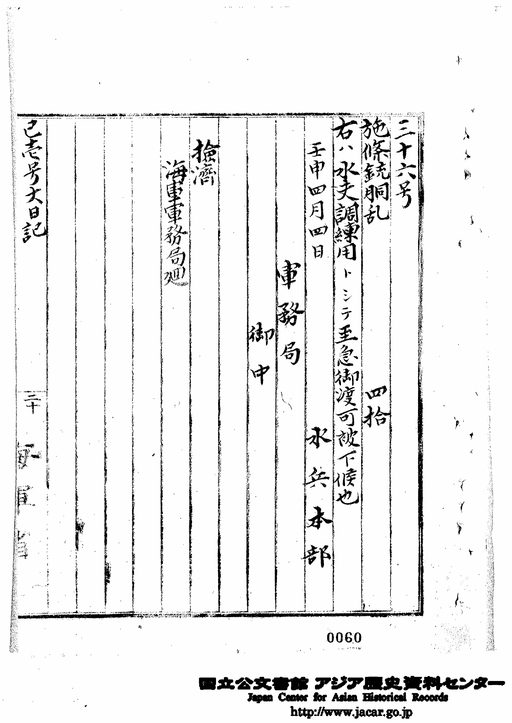 三十六号
施條銃胴乱 四拾
右ハ水夫調練用トシテ至急御渡可被下候也
壬申四月四日
水兵本部
軍務局
御中
撿済
海軍軍務局廻
己壱号大日記
三十
海軍省
0060
国立公文書館 アジア歴史資料センター
Japan Center for Asian Historical Records
http://www.jacar.go.jp